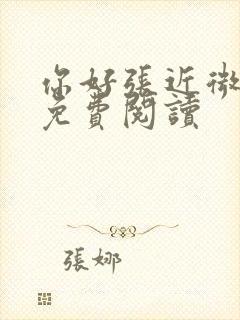 你好張近微
免費閱讀
張娜